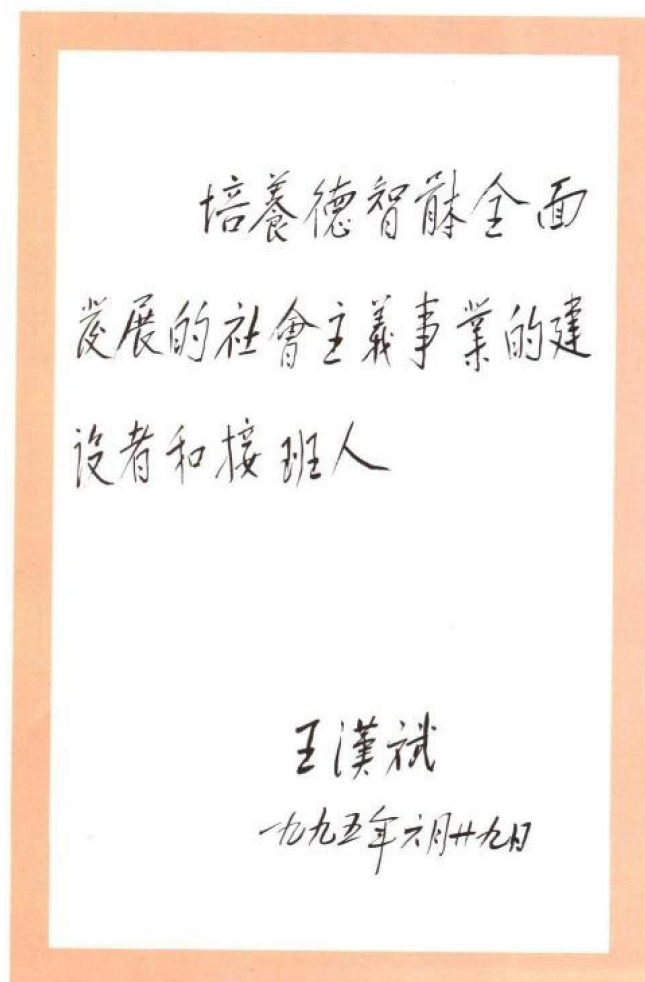 培養德智體全面
發展的社會主義事業的建
設者和接班人
王漢斌
一九九五年六月廿九日